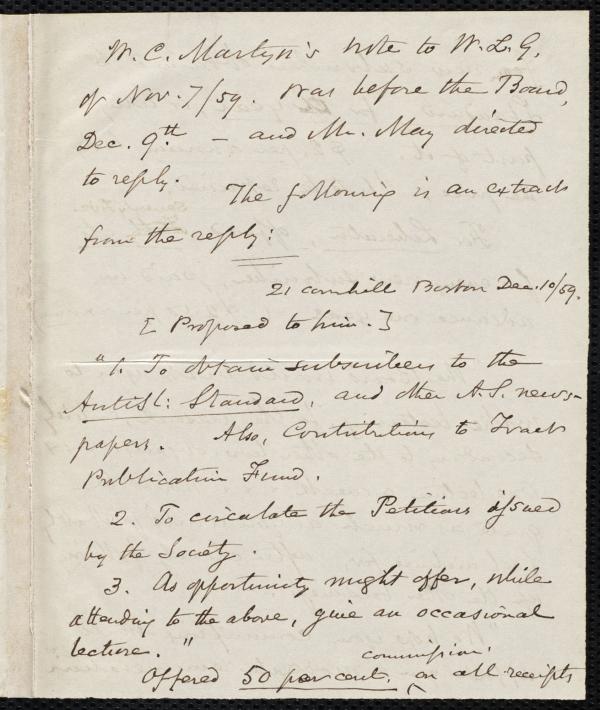 W. C. Martyn's note to W. L. G.
of Nov. 7/59. Was before the Board,
Dec. 9th. — and Mr. May directed
to reply.
The following is an extract
from the reply:
21 Cornhill Boston Dec. 10/59.
[Proposed to him.]
"1. To obtain subscribers to the
AntiSl: Standard, and other A. S. news-
papers. Also, Contributions to Tract
Publication Fund.
2. To circulate the Petitions issued
by the Society.
3. As opportunity might offer, while
attending to the above, give an occasional
lecture."
commission
Offered 50 per cent. ^ on all receipts